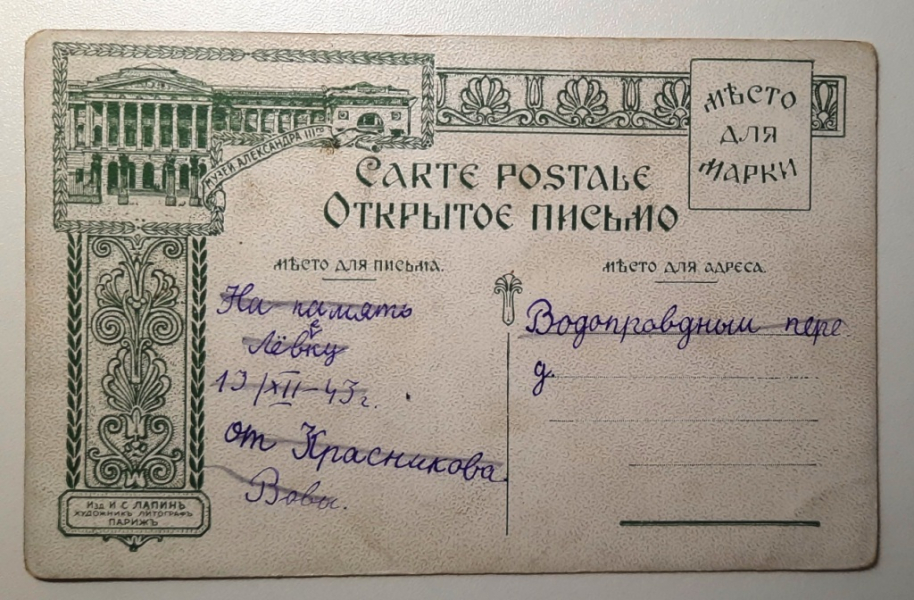 МУЗЕЙ АЛЕКСАНДРА IIIго
CARTE POSTALE
ОТКРЫТОЕ ПИСЬМО
МѢСТО
ДЛЯ
МАРКИ
МѢСТО ДЛЯ ПИСЬМА.
На память
Лёвку
е
13/XII–43 г.
от Красникова
Вовы.
МѢСТО ДЛЯ АДРЕСА.
Водопровдный пере
д.
Изд. И. С. ЛАПИНЪ
ХУДОЖНИКЪ ЛИТОГРАФЪ
ПАРИЖЪ